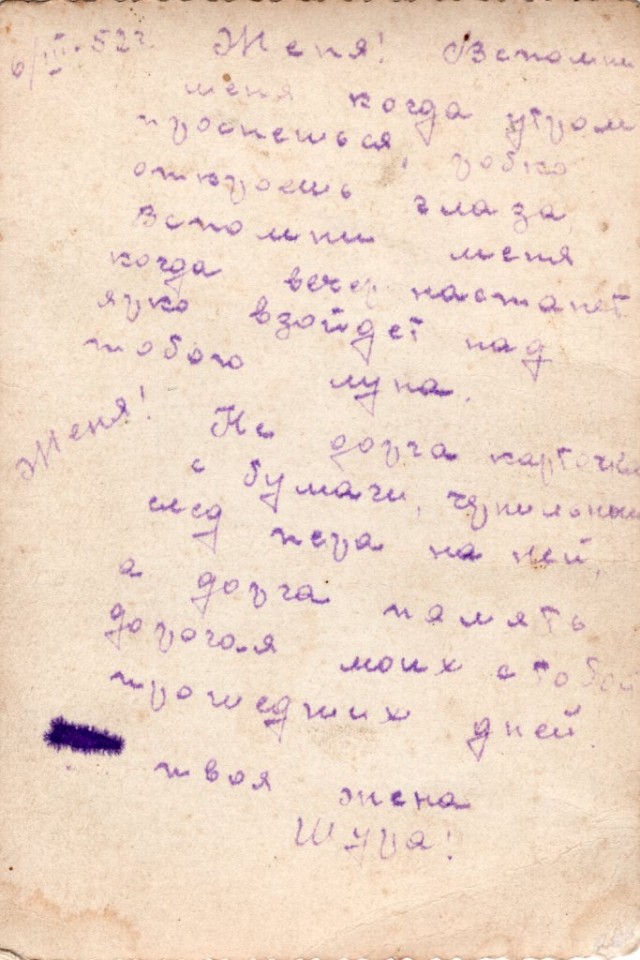 6/III-52г. Женя! Вспомни
меня когда утром
проснешься, робко
откроешь глаза
Вспомни меня
когда вечер настанет
ярко взойдет над
тобою луна.
Женя!
Не дорга карточка
с бумаги, чернильный
след пера на ней,
а дорга память
дорогая моих с тобой
прошедших дней
твоя жена
Шура!